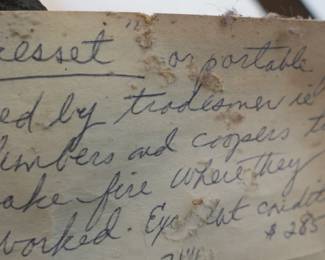 resset" or portable
ed by tradesmen ie
lumbers and coopers t
ake fire where they
worked. condit
$285